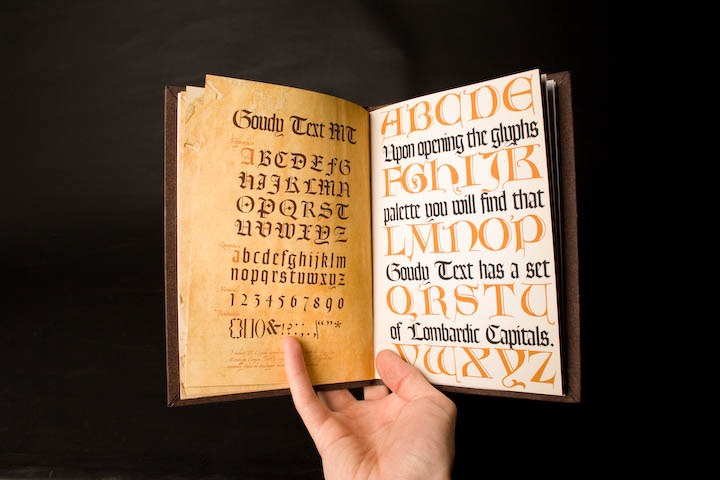 Goudy Text MT
ABCDEFG
HIJKLMN
OPQRST
UVWXYZ
abcdefghijklm
nopqrstuwxyz
1234567890
{}[]()&!?:;.,“”*
ABCDE
Upon opening the glyphs
FGHIJK
palette you will find that
LMNOP
Goudy Text has a set
QRSTU
of Lombardic Capitals.
VWXYZ